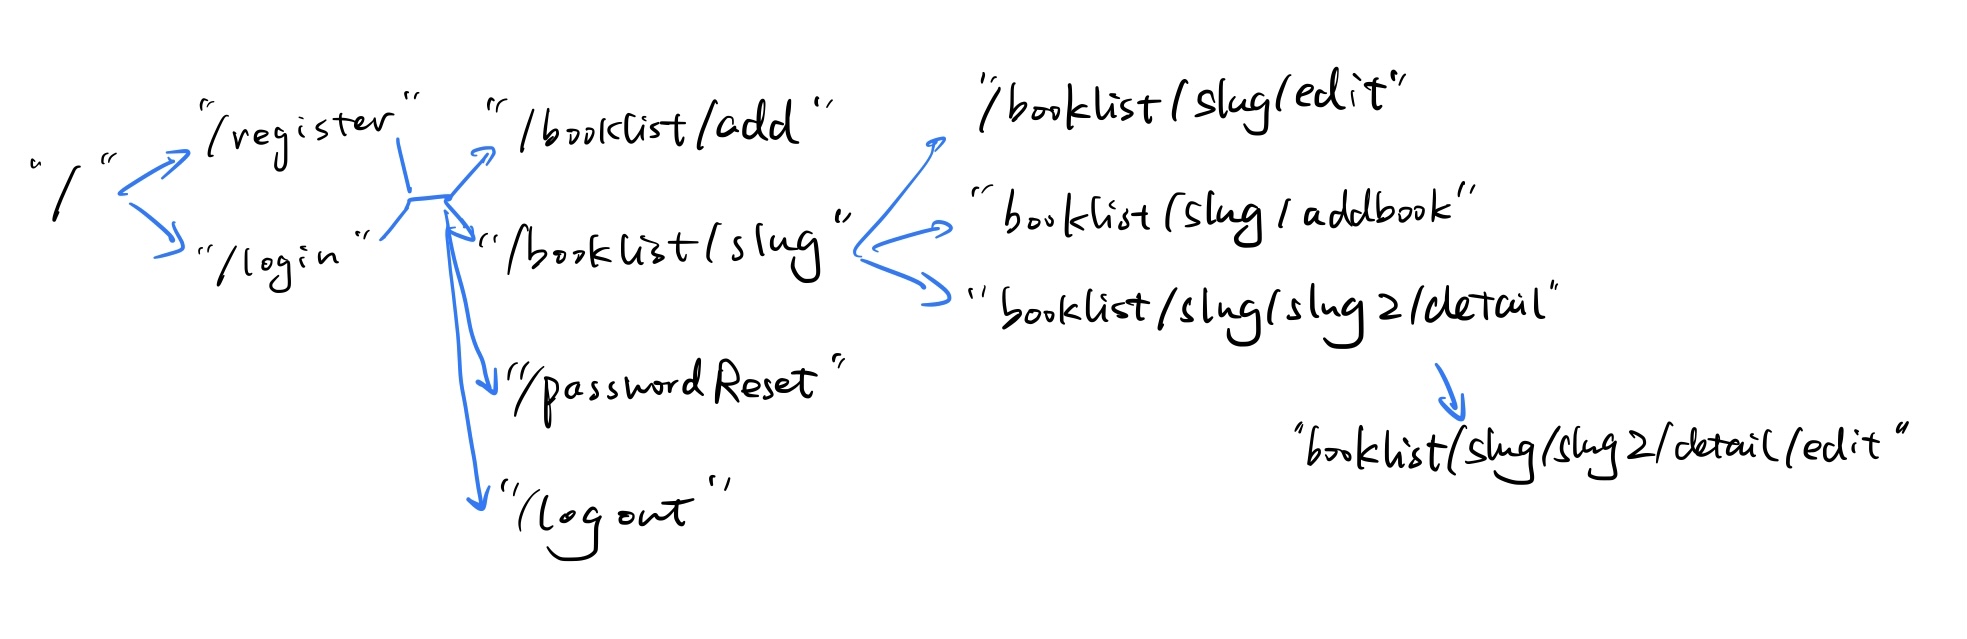 "/"
"/register"
"/login"
"/booklist/add"
"/booklist/slug"
"/passwordReset"
"/logout"
"/booklist/slug/edit"
"booklist/slug/addbook"
"booklist/slug/slug2/detail"
"booklist/slug/slug2/detail/edit"